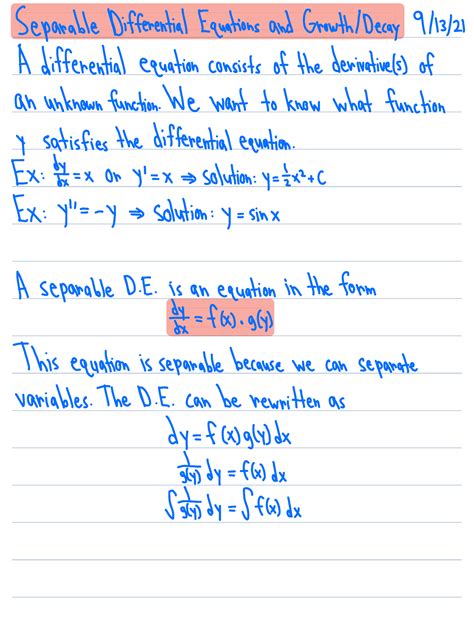 Separable Differential Equations and Growth/Decay 9/13/21
A differential equation consists of the derivative(s) of
an unknown function. We want to know what function
y satisfies the differential equation.
Ex: dy/dx = x or y' = x ⇒ solution: y = 1/2 x² + C
Ex: y'' = -y ⇒ solution: y = sin x
A separable D.E. is an equation in the form
dy/dx = f(x) · g(y)
This equation is separable because we can separate
variables. The D.E. can be rewritten as
dy = f(x)g(y)dx
1/g(y) dy = f(x) dx
∫ 1/g(y) dy = ∫ f(x) dx